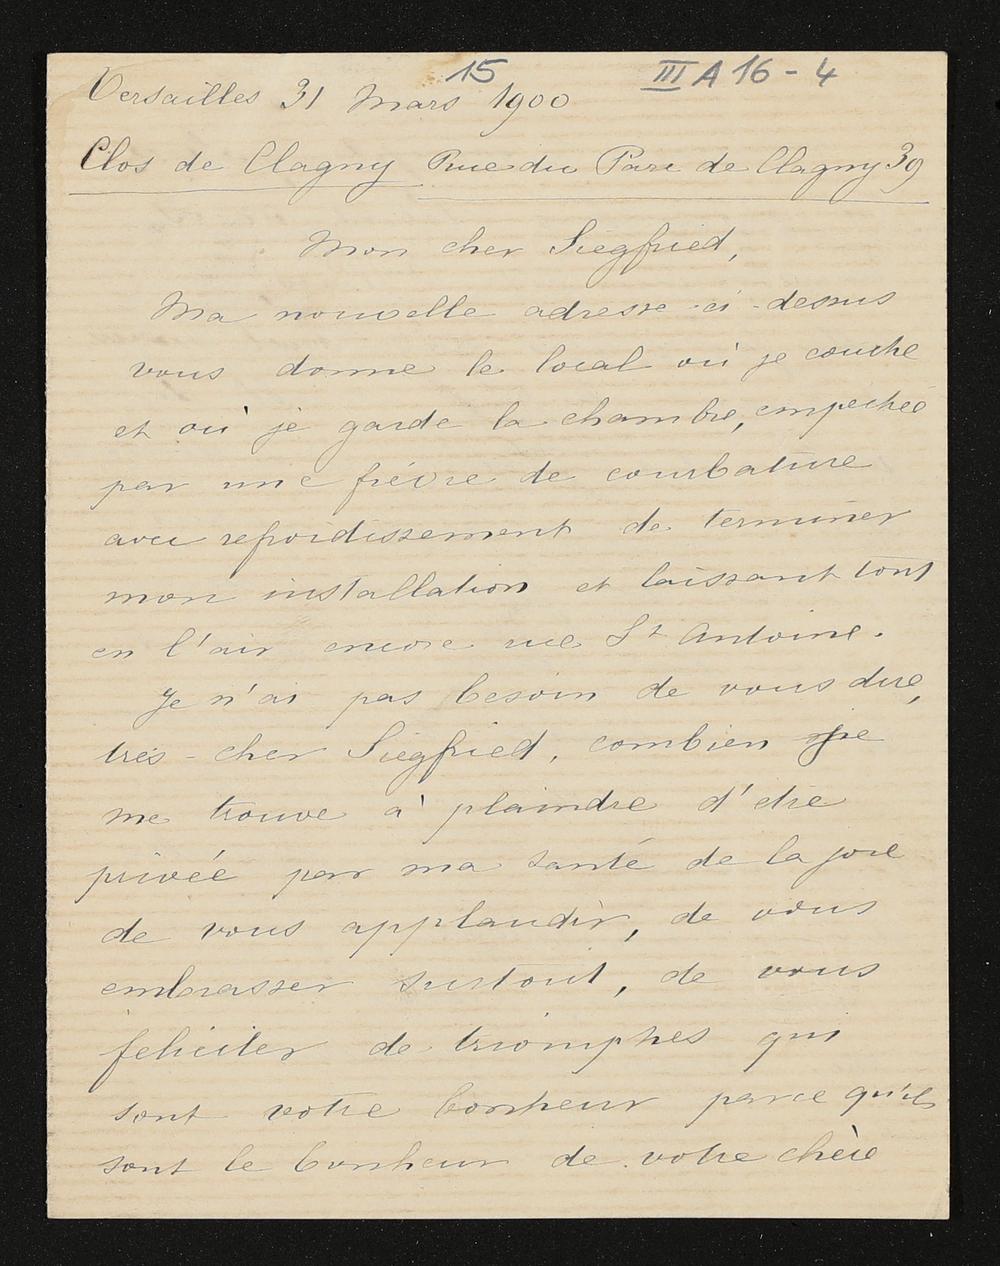 15 III A 16 - 4
Versailles 31 Mars 1900
Clos de Clagny Rue du Parc de Clagny 39
Mon cher Siegfried,
Ma nouvelle adresse ci-dessus
vous donne le local où je couche
et où je garde la chambre, empêchée
par une fièvre de courbature
avec refroidissement de terminer
mon installation et laissant tout
en l'air encore rue St Antoine.
Je n'ai pas besoin de vous dire,
très-cher Siegfried, combien je
me trouve à plaindre d'être
privée par ma santé de la joie
de vous applaudir, de vous
embrasser surtout, de vous
féliciter de triomphes qui
sont votre bonheur parce qu'ils
sont le bonheur de votre chère